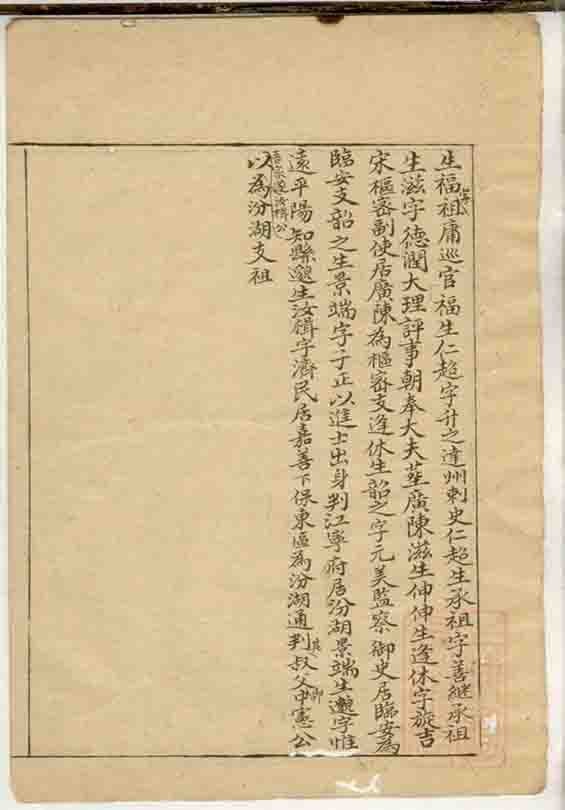 生福祖庸巡官福生仁超字升之達州刺史仁超生承祖字善継承祖
生滋字德潤大理評事朝奉大夫塟廣陳滋生伸伸生逢休字旋吉
宋樞密副使居廣陳為樞密支逢休生韶之字元美監察御史居臨安為
臨安支韶之生景端字子正以進士出身判江寧府居汾湖景端生邈字惟
遠平陽知縣邈生汝楫字濟民居嘉善下保東區為汾湖通判其叔父中憲公
以為汾湖支祖